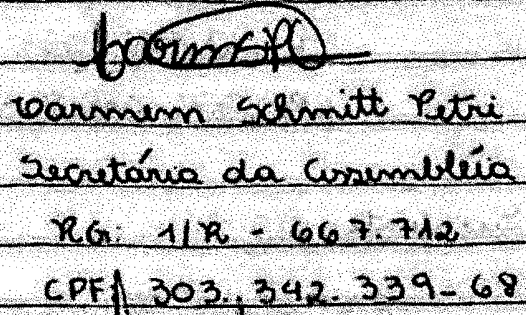 Carmem Schmitt Petri
Secretária da Assembléia
RG: 1/R - 667.712
CPF 303.342.339-68